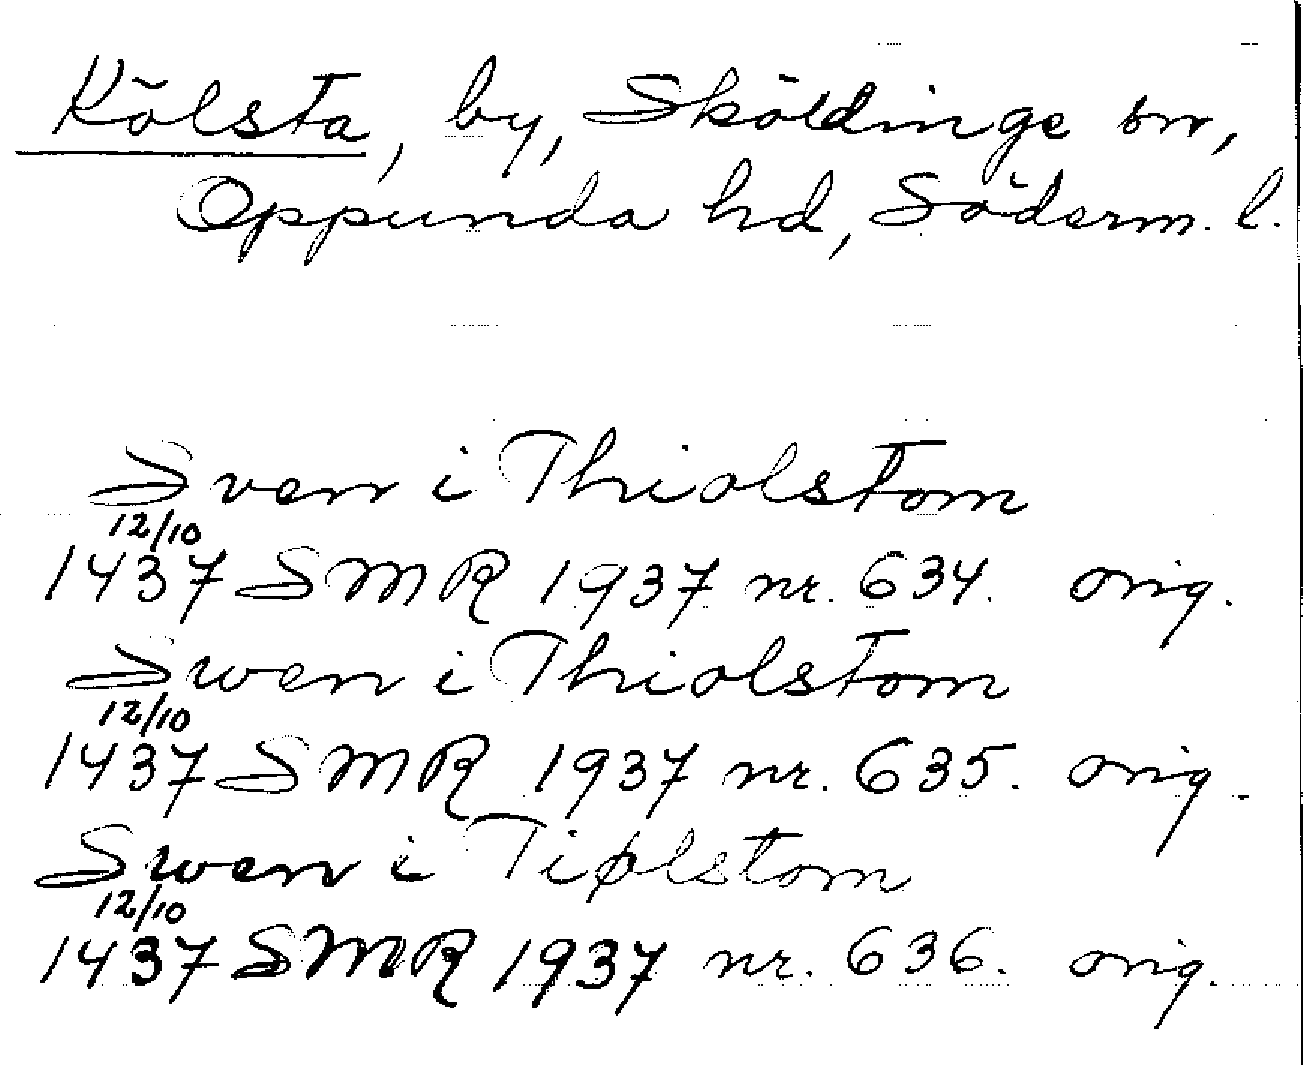 Kölsta, by, Sköldinge sn,
Oppunda hd, Söderm. l.
Sven i Thiolstom
12/10
1437 SMR 1937 nr. 634. orig.
Swen i Thiolstom
12/10
1437 SMR 1937 nr. 635. orig.
Swen i Tiølstom
12/10
1437 SMR 1937 nr. 636. orig.